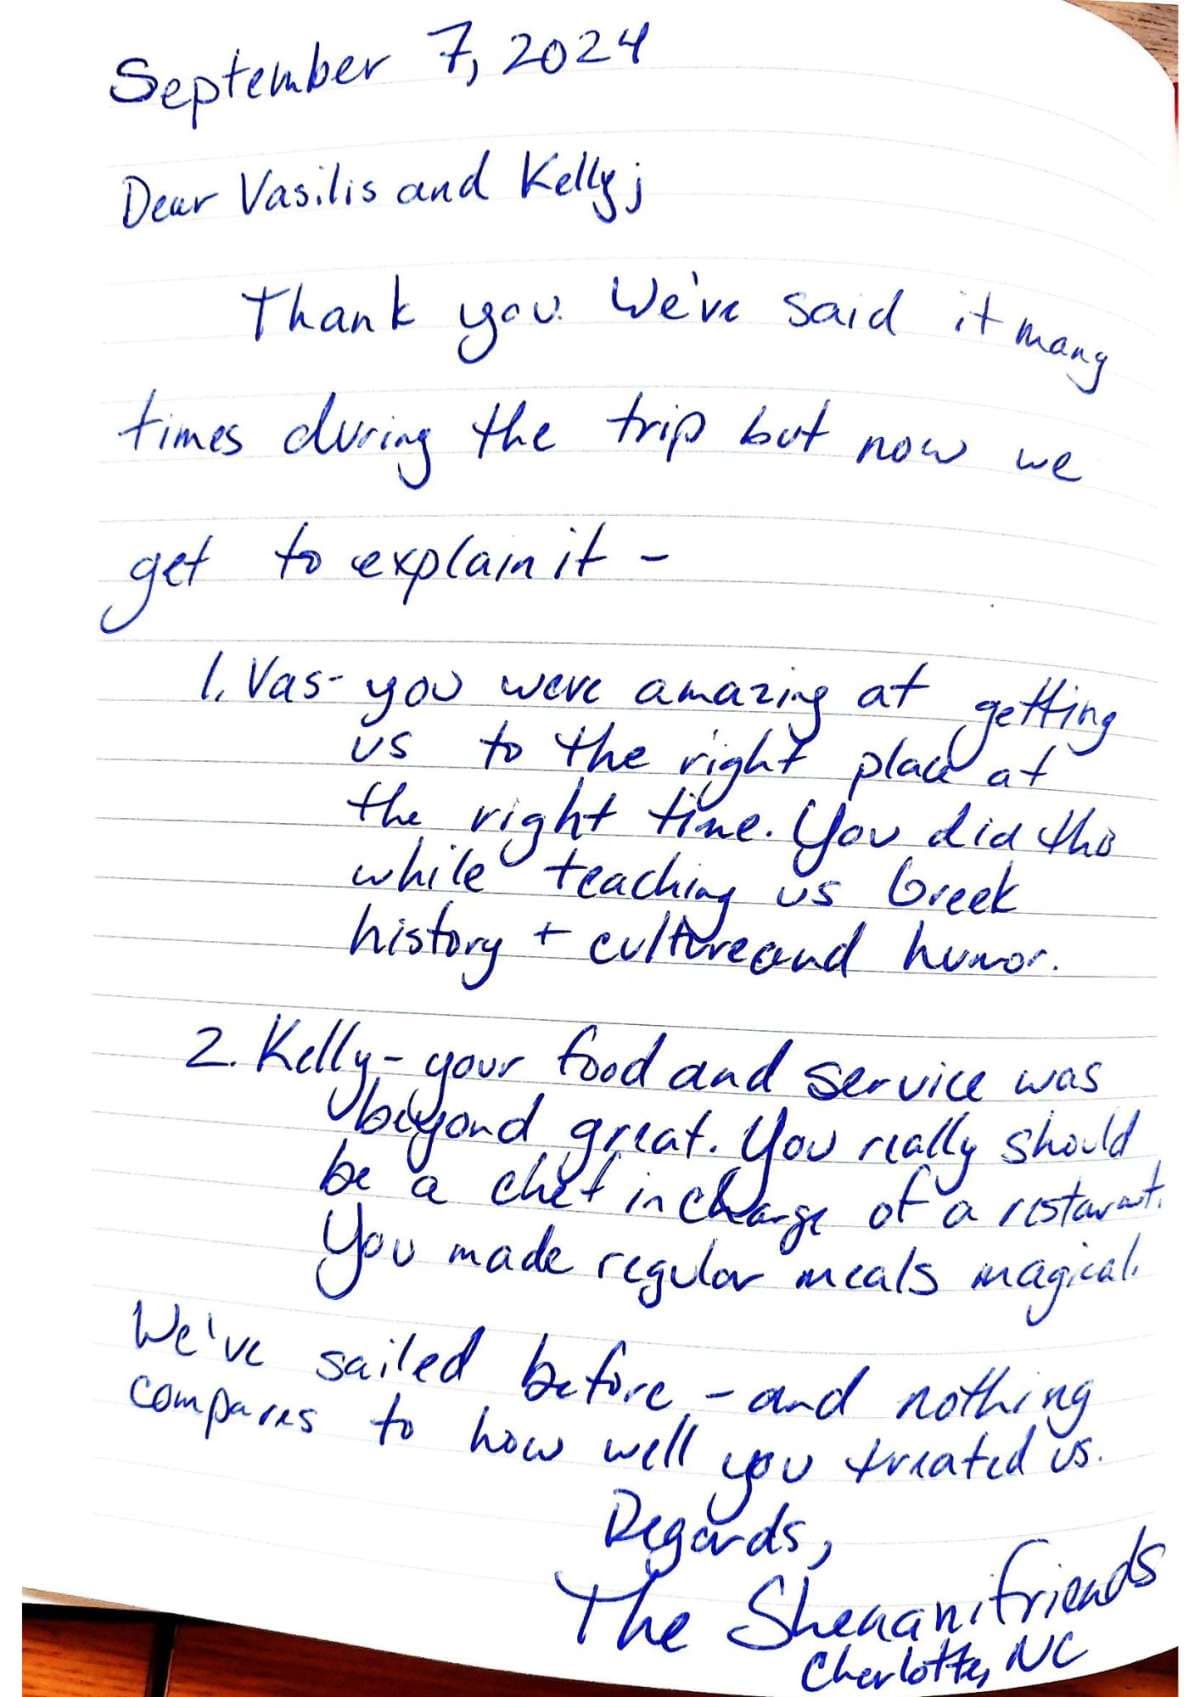 September 7, 2024
Dear Vasilis and Kelly;
Thank you. We've said it many
times during the trip but now we
get to explain it -
1. Vas- you were amazing at getting
us to the right place at
the right time. You did this
while teaching us Greek
history + culture and humor.
2. Kelly - your food and service was
beyond great. You really should
be a chef in charge of a restaurant.
You made regular meals magical.
We've sailed before - and nothing
compares to how well you treated us.
Regards,
The Shenanifriends
Charlotte, NC